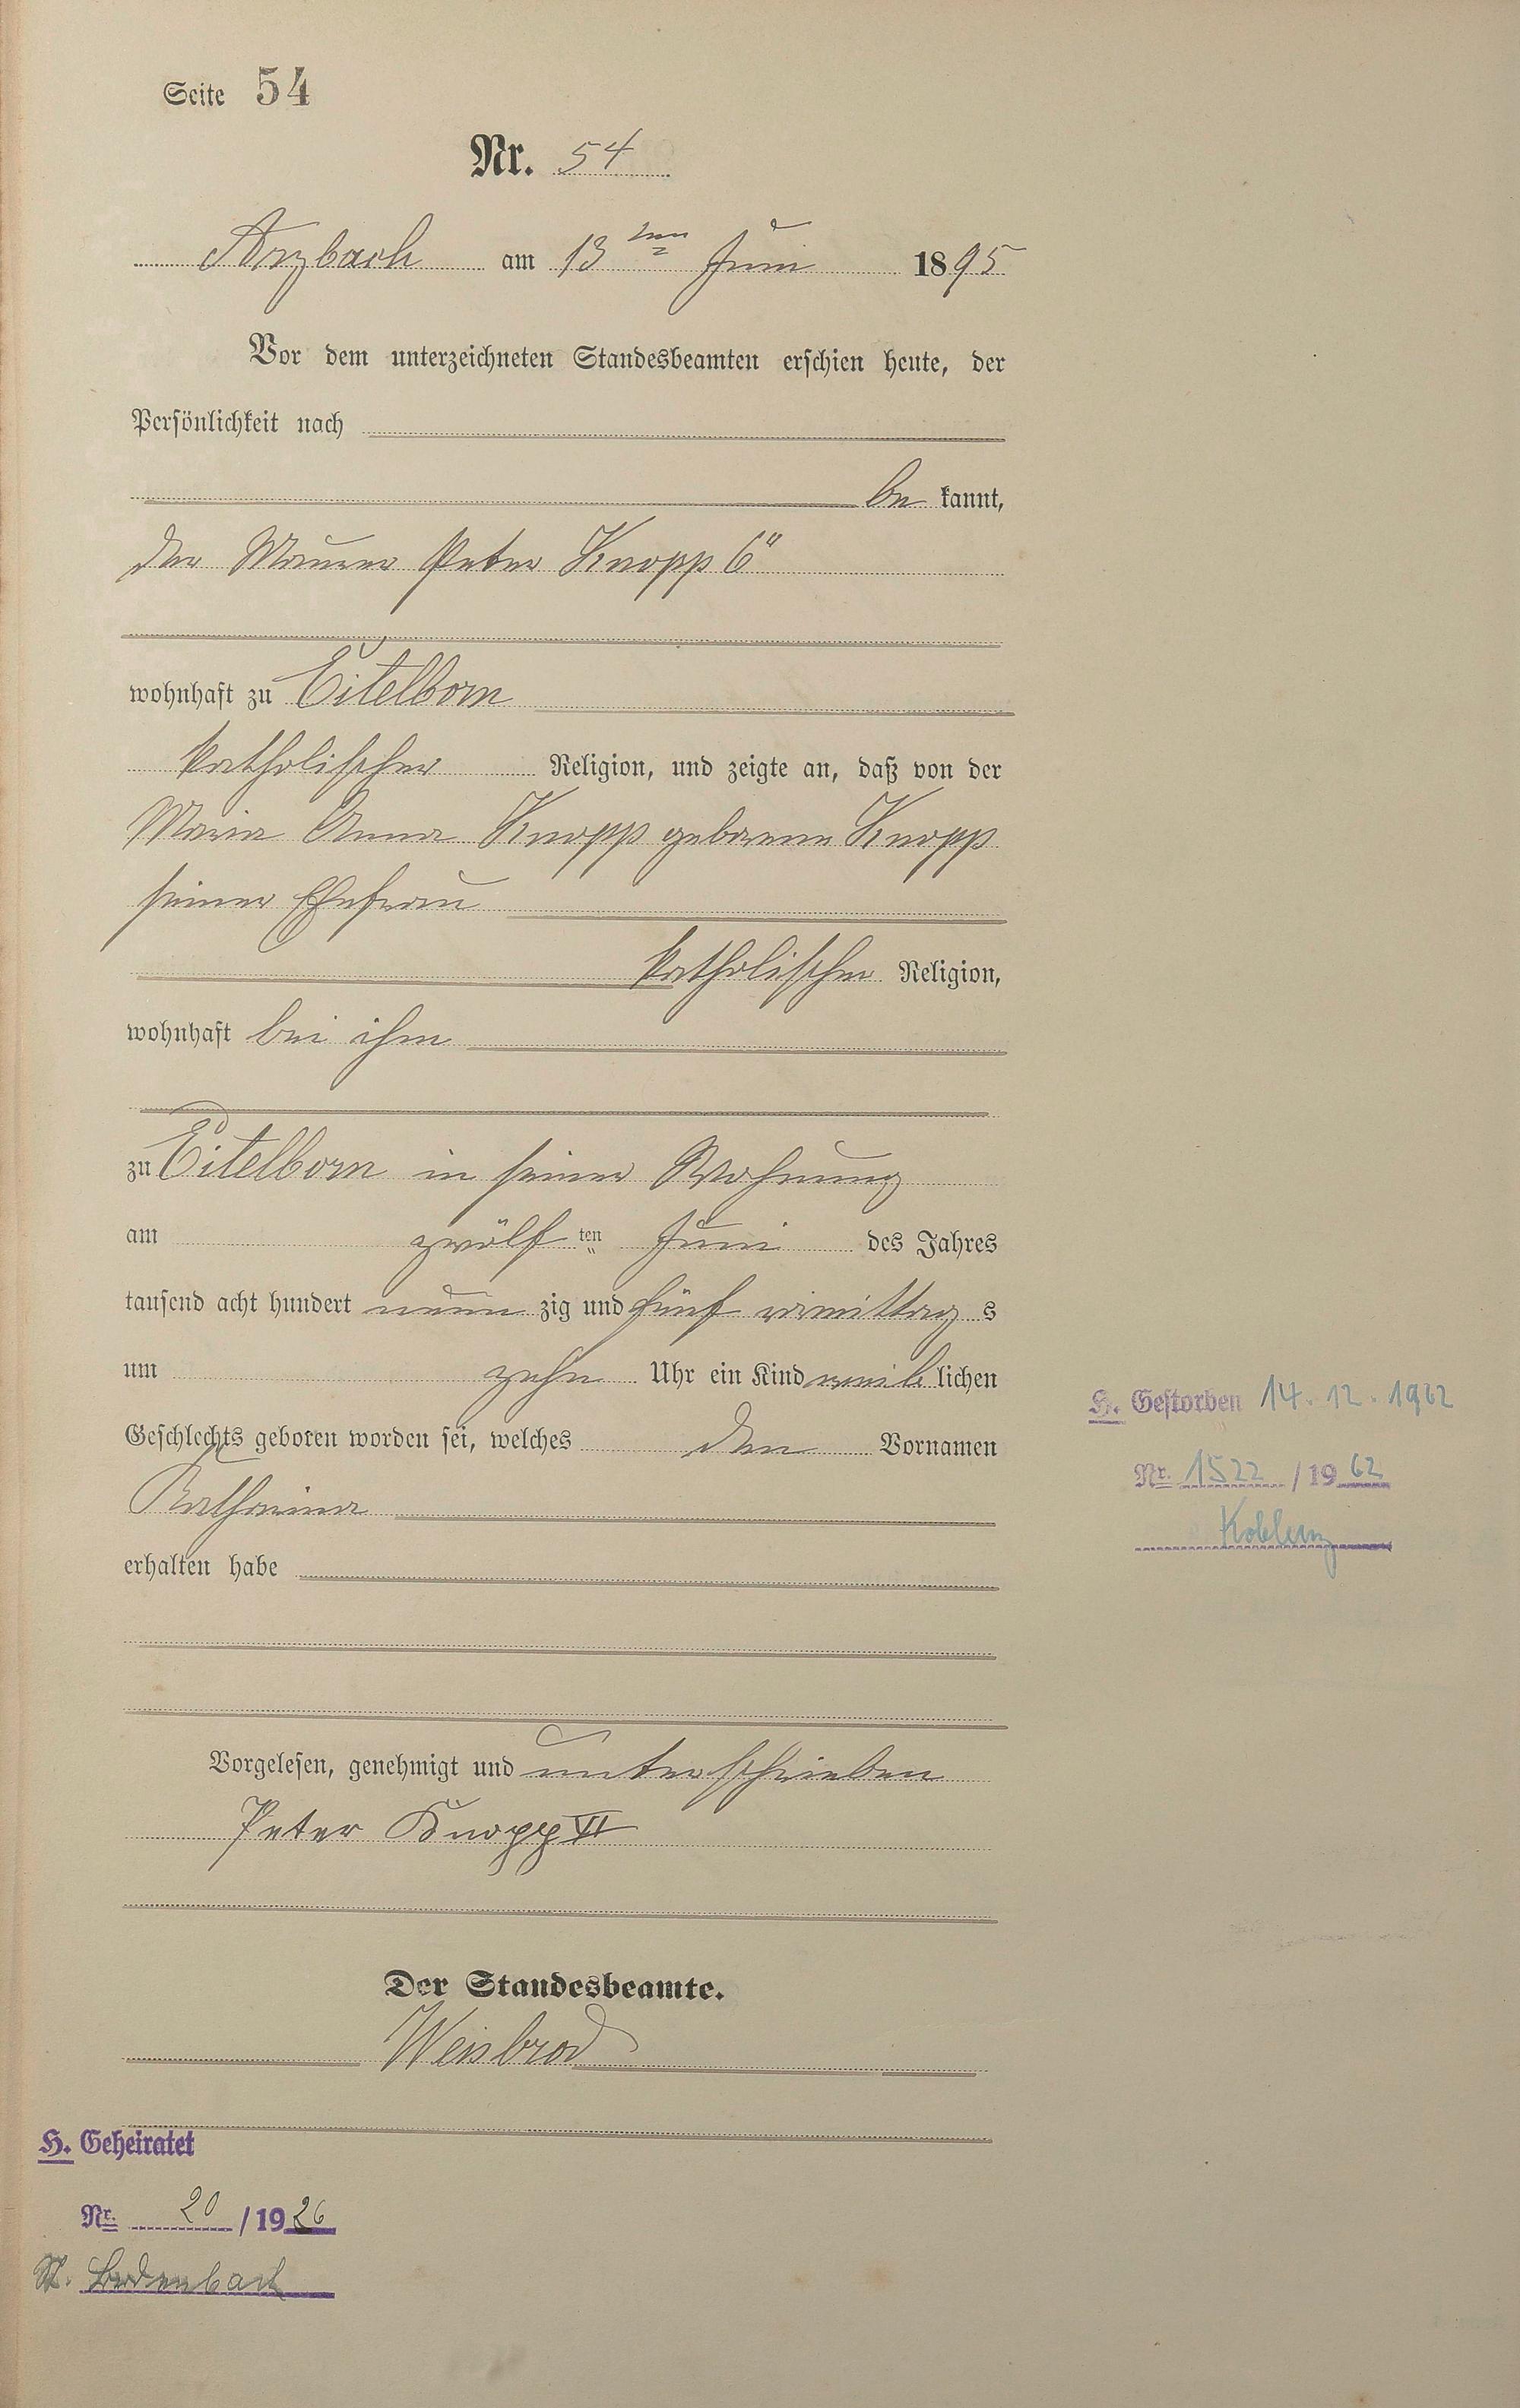 Seite 54
Nr. 54
Arzbach am 13ten Juni 1895
Vor dem unterzeichneten Standesbeamten erschien heute, der
Persönlichkeit nach
be kannt,
der Maurer Peter Knopp 6"
wohnhaft zu Eitelborn
katholischer Religion, und zeigte an, daß von der
Maria Anna Knopp geborene Knopp
seiner Ehefrau
katholischer Religion,
wohnhaft bei ihm
zu Eitelborn in seiner Wohnung
am zwölf ten Juni des Jahres
tausend acht hundert neun zig und fünf vormittag s
um zehn Uhr ein Kind weib lichen
Geschlechts geboren worden sei, welches den Vornamen
Katharina
erhalten habe
H. Gestorben 14.12.1962
Nr. 1522 / 19 62
Koblenz
Vorgelesen, genehmigt und unterschrieben
Peter Knopp VI
Der Standesbeamte.
Weisbrod
H. Geheiratet
Nr. 20 / 19 26